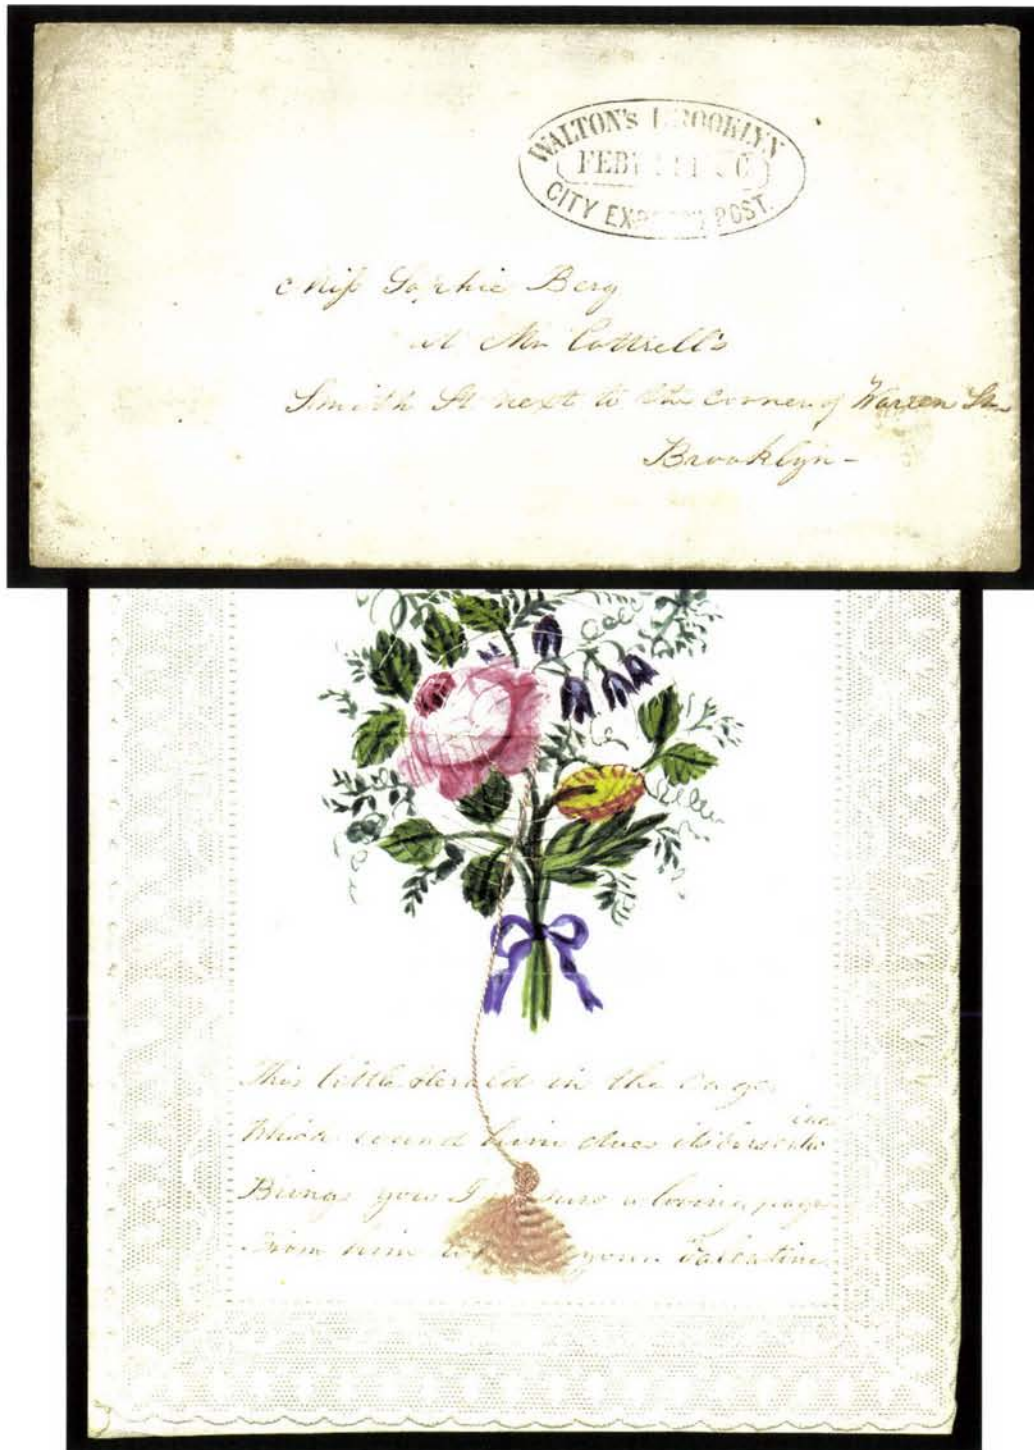 WALTON'S BROOKLYN
FEBY
CITY EXPRESS POST.
Miss Sophie Berg
at Mr Cottrell's
Smith St next to the corner of Warren St
Brooklyn -
This little Herald in the cage
Which round him does its
Brings you I sure a loving page
From him your Valentine